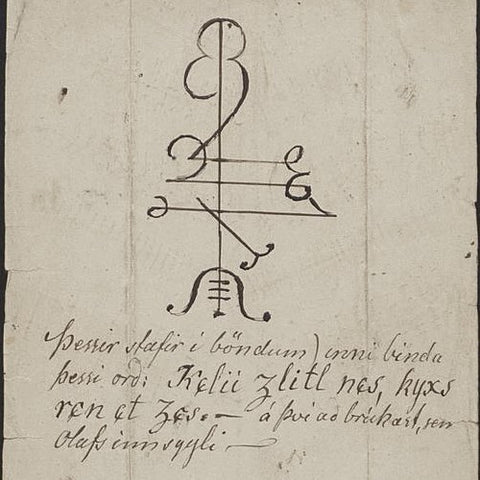 Þessir stafir í böndum) inni binda
þessi orð: Kelii zlitl nes, kyxs
ren et zes. — á því að brúkast, sem
Olafs innsygli —